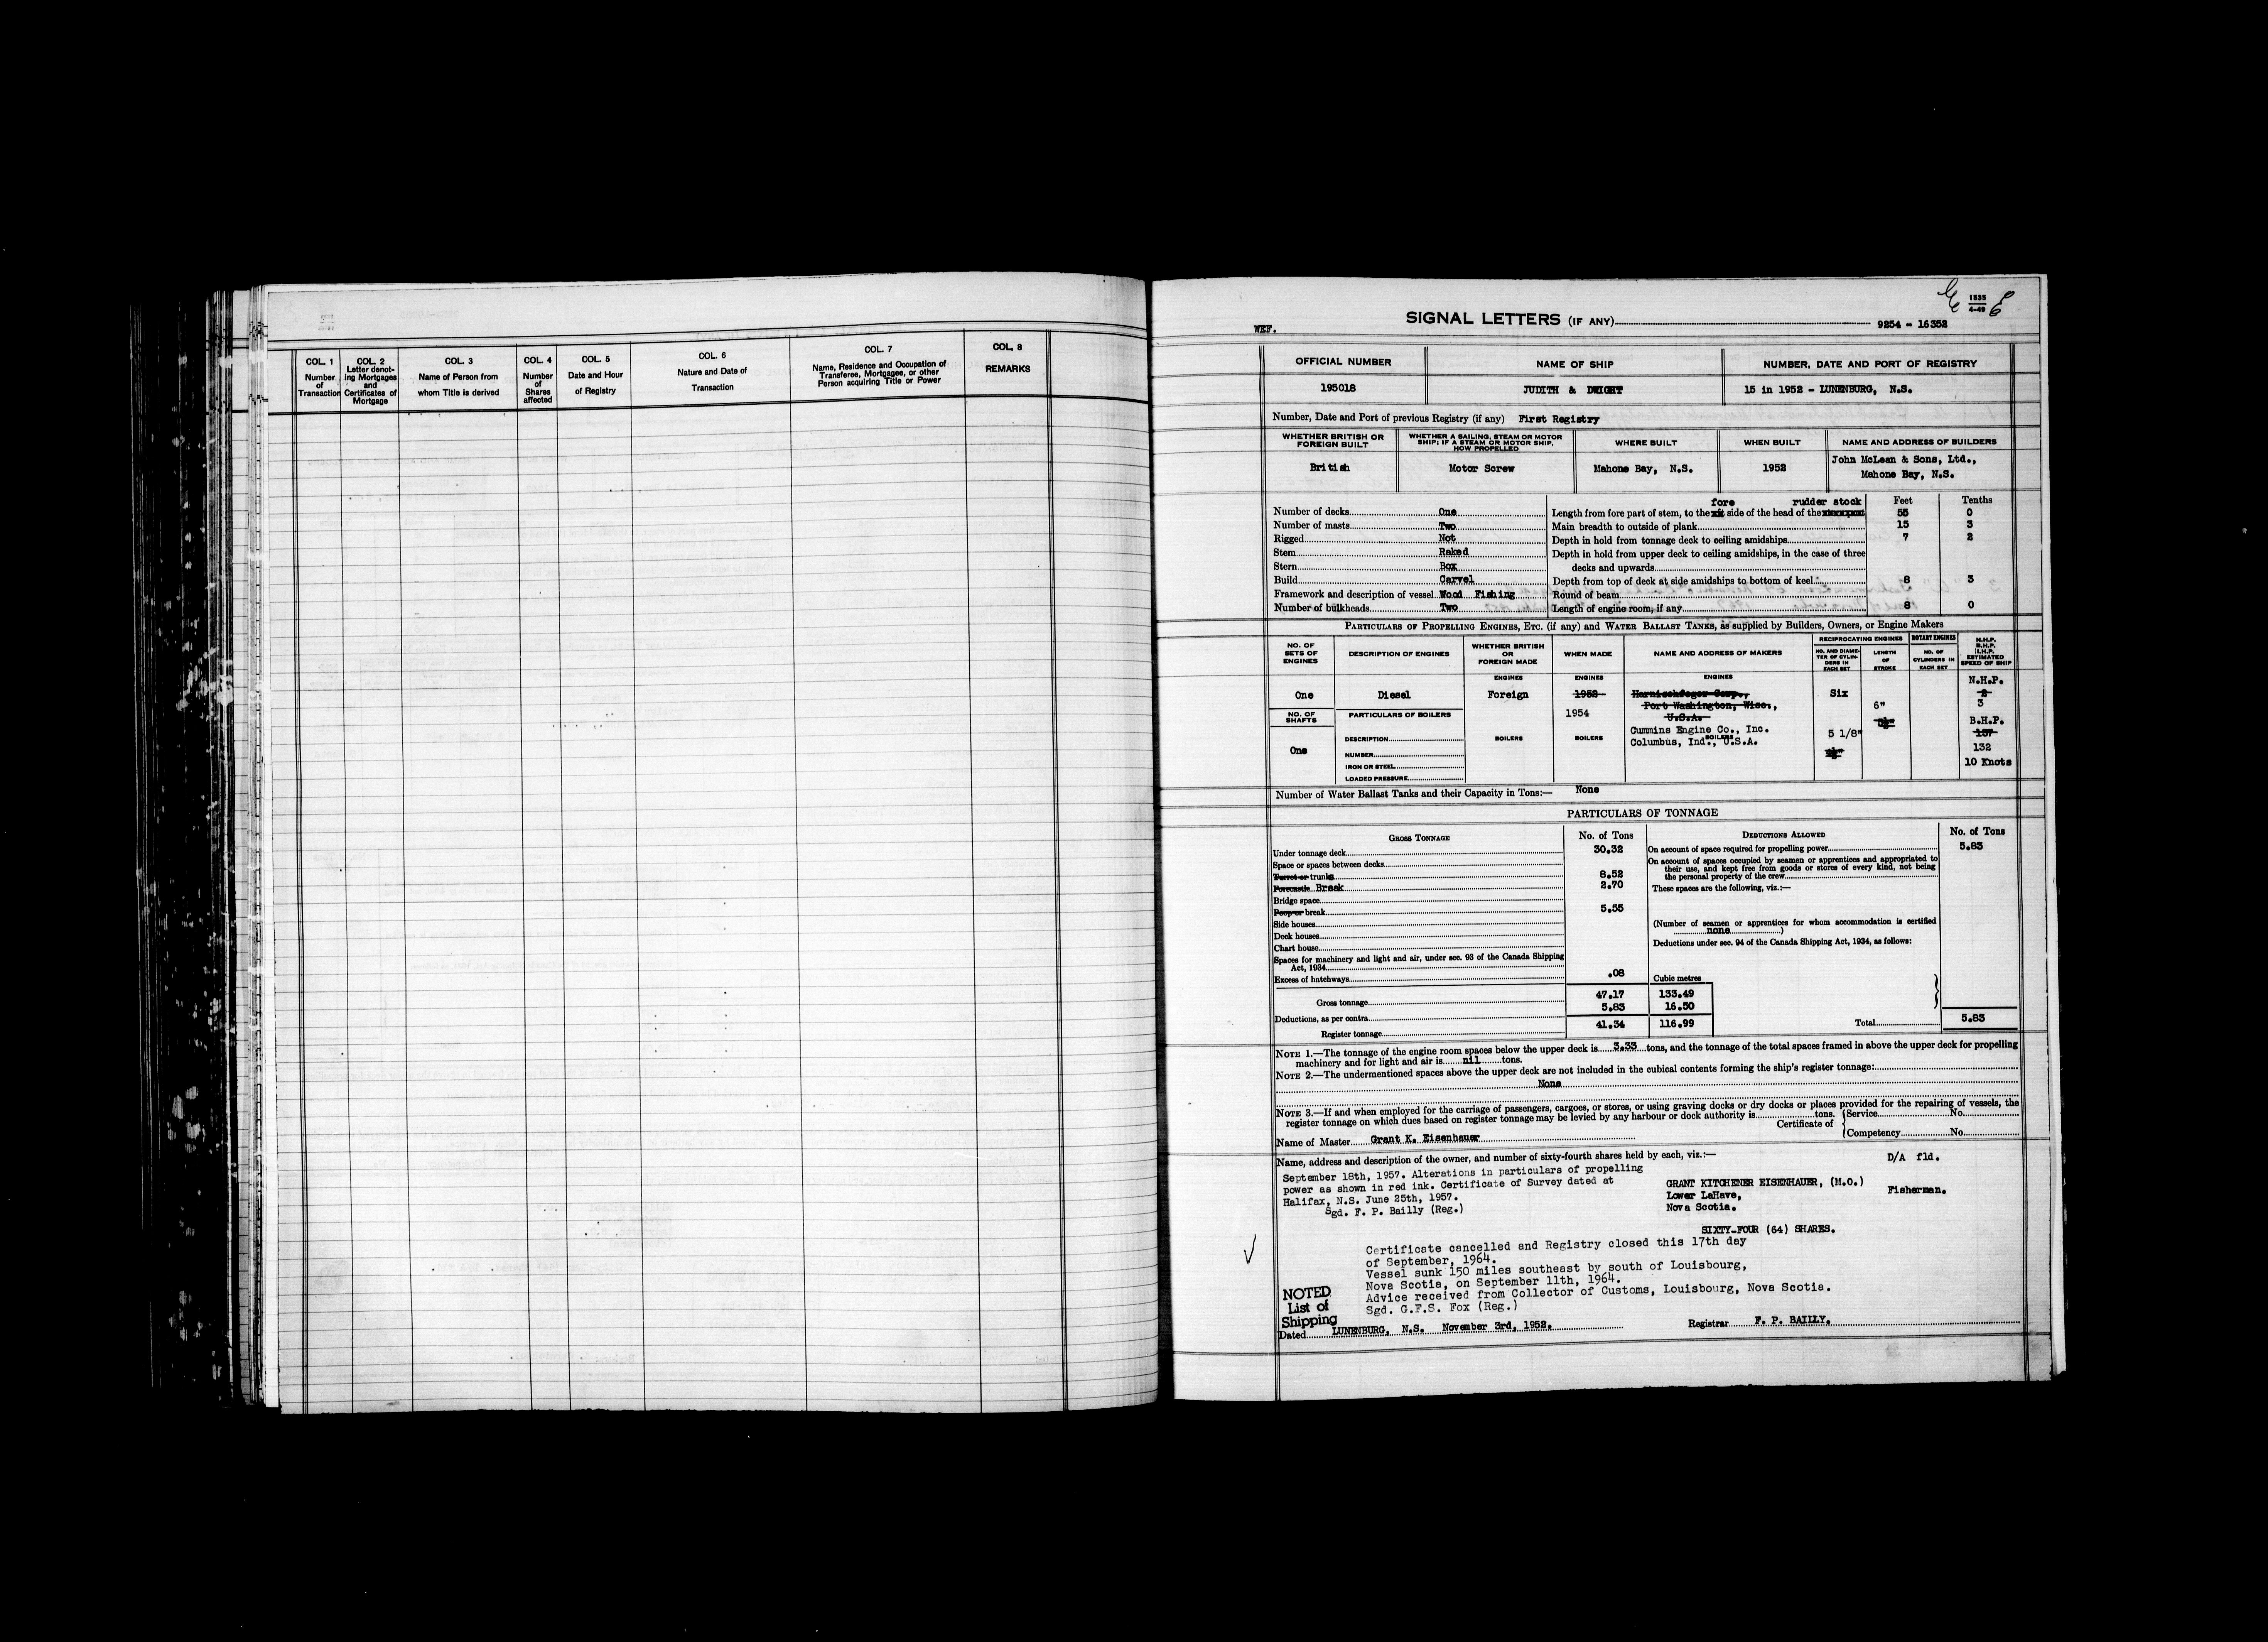 COL. 1
Number
of
Transaction
COL. 2
Letter denot-
ing Mortgages
and
Certificates of
Mortgage
COL. 3
Name of Person from
whom Title is derived
COL. 4
Number
of
Shares
affected
COL. 5
Date and Hour
of Registry
COL. 6
Nature and Date of
Transaction
COL. 7
Name, Residence and Occupation of
Transferee, Mortgagee, or other
Person acquiring Title or Power
COL. 8
REMARKS
1535
4-49
WEF.
SIGNAL LETTERS (IF ANY)
9254 - 16352
OFFICIAL NUMBER
NAME OF SHIP
NUMBER, DATE AND PORT OF REGISTRY
195018
JUDITH & DWIGHT
15 in 1952 - LUNENBURG, N.S.
Number, Date and Port of previous Registry (if any) First Registry
WHETHER BRITISH OR
FOREIGN BUILT
WHETHER A SAILING, STEAM OR MOTOR
SHIP; IF A STEAM OR MOTOR SHIP,
HOW PROPELLED
WHERE BUILT
WHEN BUILT
NAME AND ADDRESS OF BUILDERS
British
Motor Screw
Mahone Bay, N.S.
1952
John McLean & Sons, Ltd.,
Mahone Bay, N.S.
fore rudder stock
Feet Tenths
Number of decks One
Length from fore part of stem, to the aft side of the head of the sternpost 55 0
Number of masts Two
Main breadth to outside of plank 15 3
Rigged Not
Depth in hold from tonnage deck to ceiling amidships 7 2
Stem Raked
Depth in hold from upper deck to ceiling amidships, in the case of three
Stern Box
decks and upwards
Build Carvel
Depth from top of deck at side amidships to bottom of keel 8 3
Framework and description of vessel Wood Fishing
Round of beam
Number of bulkheads Two
Length of engine room, if any 8 0
PARTICULARS OF PROPELLING ENGINES, ETC. (if any) and WATER BALLAST TANKS, as supplied by Builders, Owners, or Engine Makers
NO. OF
SETS OF
ENGINES
DESCRIPTION OF ENGINES
WHETHER BRITISH
OR
FOREIGN MADE
WHEN MADE
NAME AND ADDRESS OF MAKERS
RECIPROCATING ENGINES
ROTARY ENGINES
NO. AND DIAME-
TER OF CYLIN-
DERS IN
EACH SET
LENGTH
OF
STROKE
NO. OF
CYLINDERS IN
EACH SET
N.H.P.
B.H.P.
I.H.P.
ESTIMATED
SPEED OF SHIP
ENGINES
ENGINES
ENGINES
One
Diesel
Foreign
1952
1954
Harnischfeger Corp.,
Port Washington, Wisc.,
U.S.A.
Cummins Engine Co., Inc.
Columbus, Ind., U.S.A.
Six
5 1/8"
6"
N.H.P.
2
3
B.H.P.
137
132
10 Knots
NO. OF
SHAFTS
One
PARTICULARS OF BOILERS
DESCRIPTION
NUMBER
IRON OR STEEL
LOADED PRESSURE
BOILERS
BOILERS
BOILERS
Number of Water Ballast Tanks and their Capacity in Tons:— None
PARTICULARS OF TONNAGE
GROSS TONNAGE
No. of Tons
DEDUCTIONS ALLOWED
No. of Tons
Under tonnage deck 30.32
Space or spaces between decks
Turret or trunks 8.52
Forecastle Break 2.70
Bridge space
Poop or break 5.55
Side houses
Deck houses
Chart house
Spaces for machinery and light and air, under sec. 93 of the Canada Shipping
Act, 1934
Excess of hatchways .08
Cubic metres
Gross tonnage 47.17 133.49
Deductions, as per contra 5.83 16.50
Register tonnage 41.34 116.99
On account of space required for propelling power 5.83
On account of spaces occupied by seamen or apprentices and appropriated to
their use, and kept free from goods or stores of every kind, not being
the personal property of the crew
These spaces are the following, viz.:—
(Number of seamen or apprentices for whom accommodation is certified
none )
Deductions under sec. 94 of the Canada Shipping Act, 1934, as follows:
Total 5.83
NOTE 1.—The tonnage of the engine room spaces below the upper deck is 3.33 tons, and the tonnage of the total spaces framed in above the upper deck for propelling
machinery and for light and air is nil tons.
NOTE 2.—The undermentioned spaces above the upper deck are not included in the cubical contents forming the ship's register tonnage:
None
NOTE 3.—If and when employed for the carriage of passengers, cargoes, or stores, or using graving docks or dry docks or places provided for the repairing of vessels, the
register tonnage on which dues based on register tonnage may be levied by any harbour or dock authority is tons.
Certificate of
Service No.
Competency No.
Name of Master Grant K. Eisenhauer
Name, address and description of the owner, and number of sixty-fourth shares held by each, viz.:—
D/A fld.
September 18th, 1957. Alterations in particulars of propelling
power as shown in red ink. Certificate of Survey dated at
Halifax, N.S. June 25th, 1957.
Sgd. F. P. Bailly (Reg.)
GRANT KITCHENER EISENHAUER, (M.O.)
Lower LaHave,
Nova Scotia.
Fisherman.
SIXTY-FOUR (64) SHARES.
Certificate cancelled and Registry closed this 17th day
of September, 1964.
Vessel sunk 150 miles southeast by south of Louisbourg,
Nova Scotia, on September 11th, 1964.
Advice received from Collector of Customs, Louisbourg, Nova Scotia.
Sgd. G.F.S. Fox (Reg.)
NOTED
List of
Shipping
Dated LUNENBURG, N.S. November 3rd, 1952.
Registrar F. P. BAILLY.